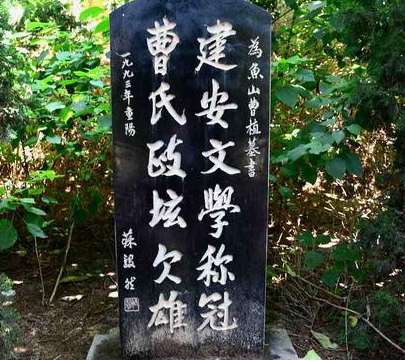 為魚山曹植墓書
建安文學称冠
曹氏政坛欠雄
一九九三年重陽